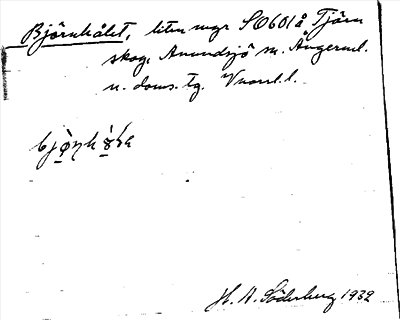 Björnhålet, liten myr SO 601 å Tjärn
skog, Anundsjö sn. Ångerml.
n. doms. tg. Vnorrl. l.
H. A. Söderberg 1932